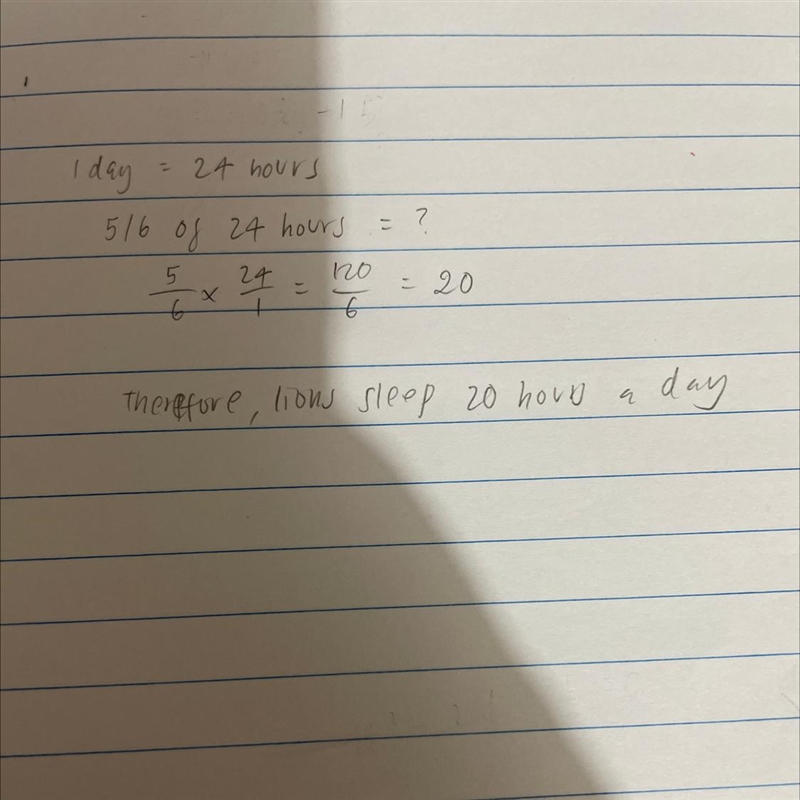 1 day = 24 hours
5/6 of 24 hours = ?
5/6 × 24/1 = 120/6 = 20
Therefore, lions sleep 20 hours a day